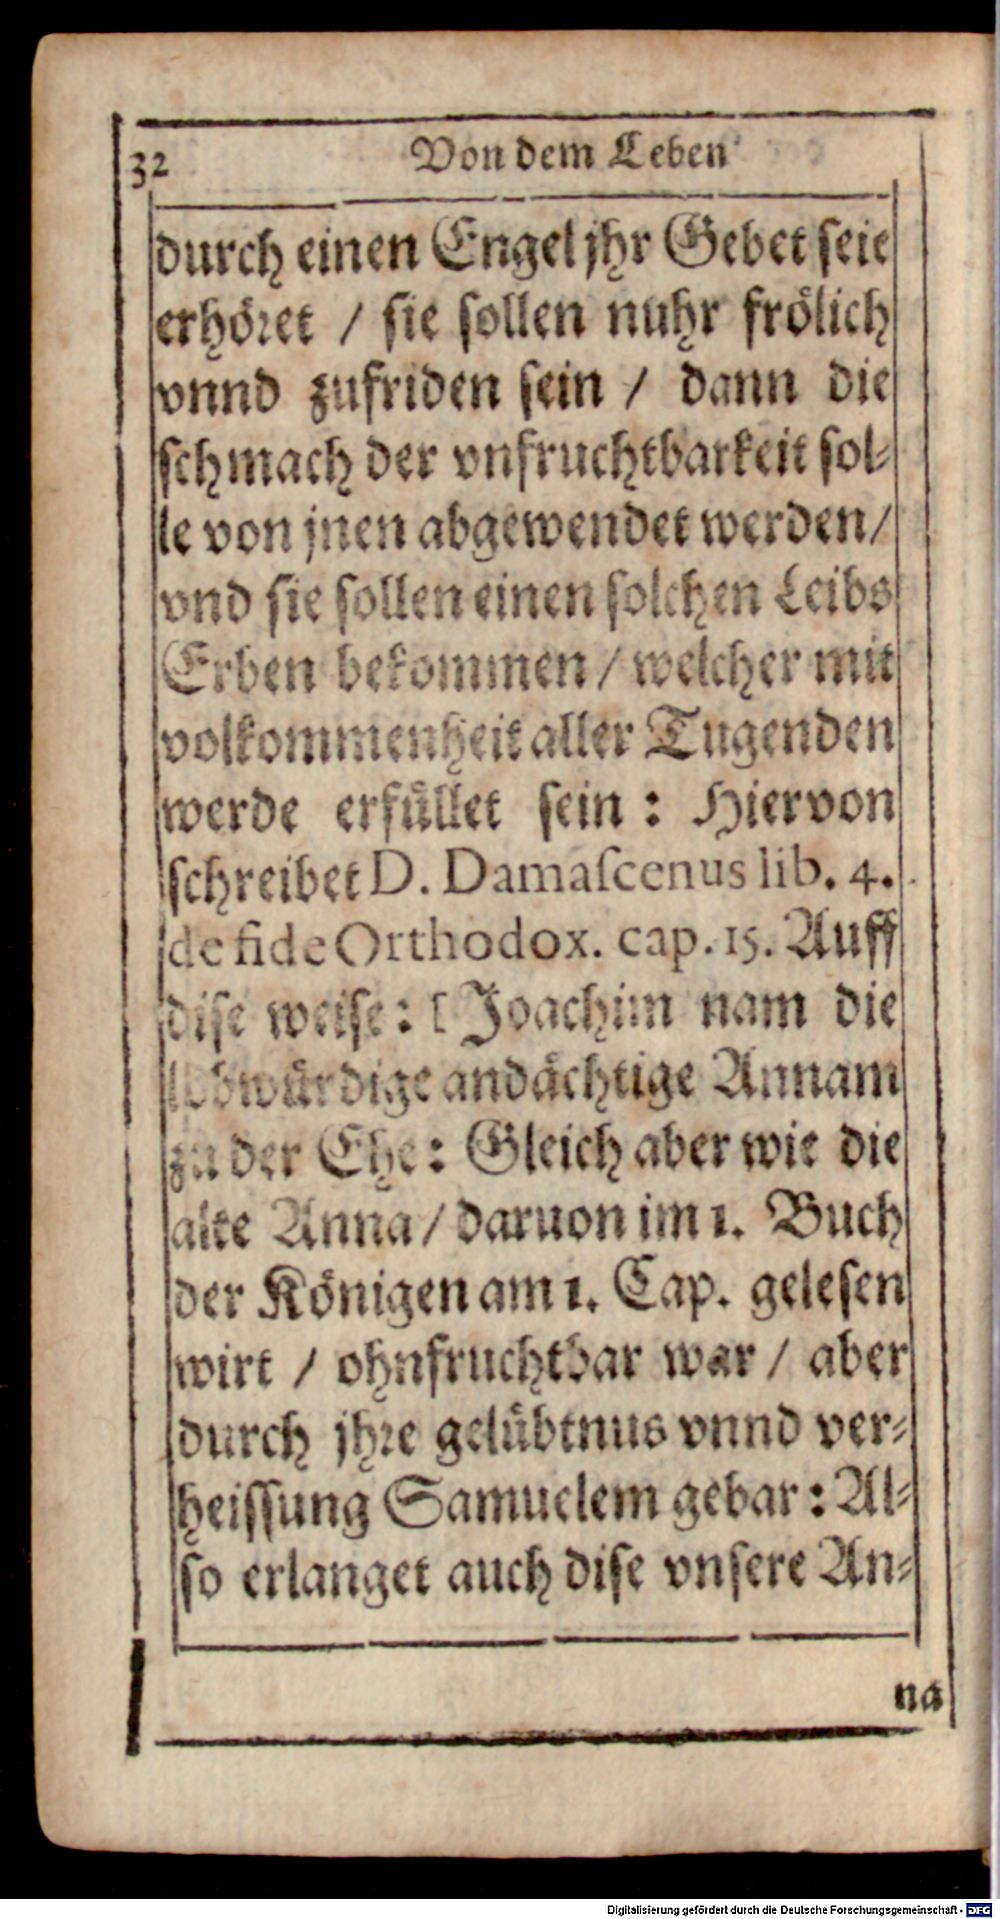 32
Von dem Leben
durch einen Engel jhr Gebet seie
erhöret / sie sollen nuhr frölich
vnnd zufriden sein / dann die
schmach der vnfruchtbarkeit sol-
le von jnen abgewendet werden/
vnd sie sollen einen solchen Leibs
Erben bekommen / welcher mit
volkommenheit aller Tugenden
werde erfüllet sein : Hiervon
schreibet D. Damascenus lib. 4.
de fide Orthodox. cap. 15. Auff
dise weise : [ Joachim nam die
lobwürdige andächtige Annam
zu der Ehe : Gleich aber wie die
alte Anna / daruon im 1. Buch
der Königen am 1. Cap. gelesen
wirt / ohnfruchtbar war / aber
durch jhre gelübtnus vnnd ver-
heissung Samuelem gebar : Al-
so erlanget auch dise vnsere An-
na
Digitalisierung gefördert durch die Deutsche Forschungsgemeinschaft - DFG